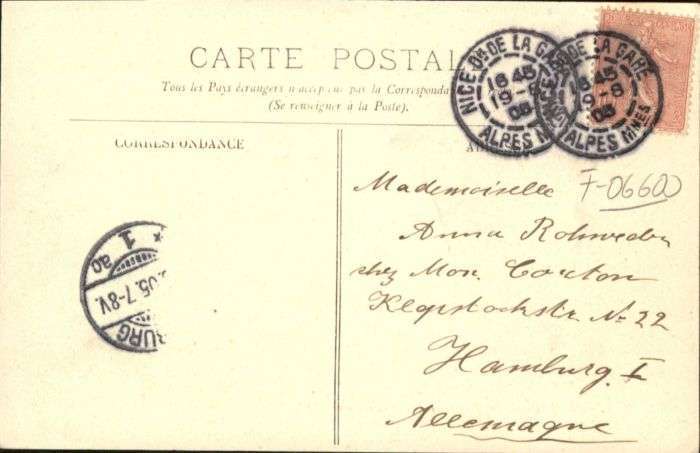 CARTE POSTAL
Tous les Pays étrangers n'acceptent pas la Corresponda
(Se renseigner à la Poste).
NICE Bd DE LA GARE
18 45
19 -8
05
ALPES M
DE LA GARE
18 45
19 -8
05
ALPES MMES
CORRESPONDANCE
Mademoiselle
F-06600
Anna Rohweder
chez Mon. Couton
Klopstockstr No 22
Hamburg I
Allemagne
* 1
ac
.05.7-8V.
BURG